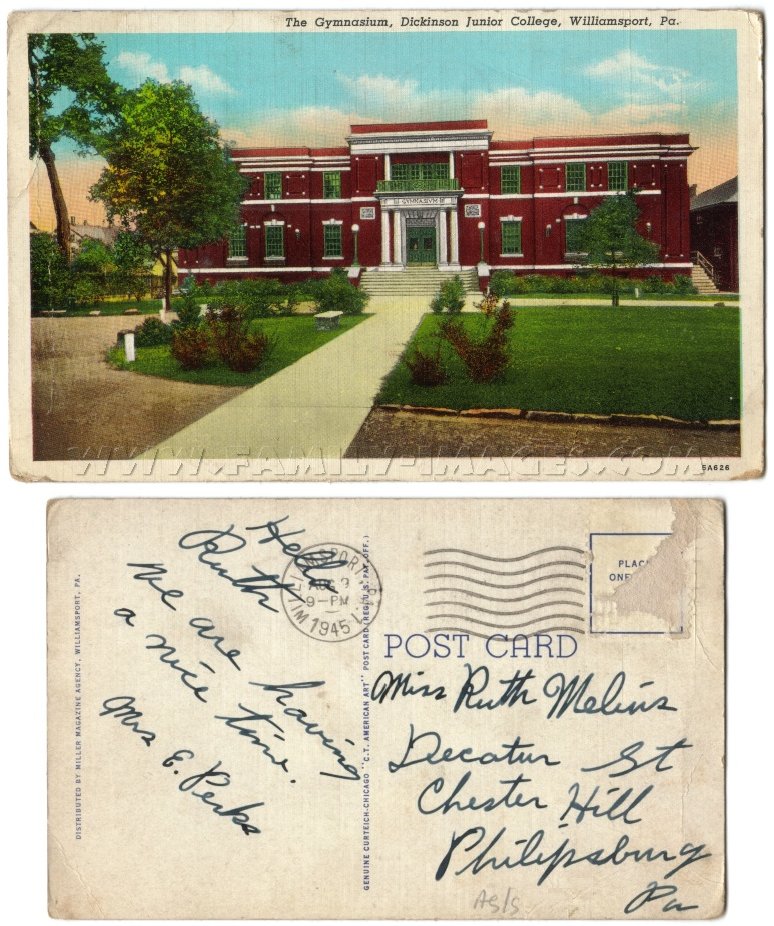 The Gymnasium, Dickinson Junior College, Williamsport, Pa.
GYMNASIUM
WWW.FAMILY-IMAGES.COM
5A626
DISTRIBUTED BY MILLER MAGAZINE AGENCY, WILLIAMSPORT, PA.
Hello
Ruth
We are having
a nice time.
Mrs E. Perks
WILLIAMSPORT
AUG 9
9-PM
1945
GENUINE CURTEICH-CHICAGO "C.T. AMERICAN ART" POST CARD (REG. U.S. PAT. OFF.)
PLAC
ONE
POST CARD
Miss Ruth Melius
Decatur St
Chester Hill
Philipsburg
Pa